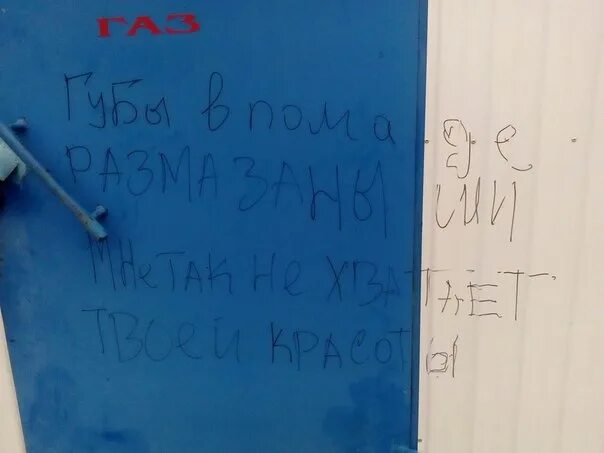 ГАЗ
Губы в помаде
РАЗМАЗАНЫ
МНеТАК Не ХВАТАЕТ
ТВОЕЙ КРАСОТЫ